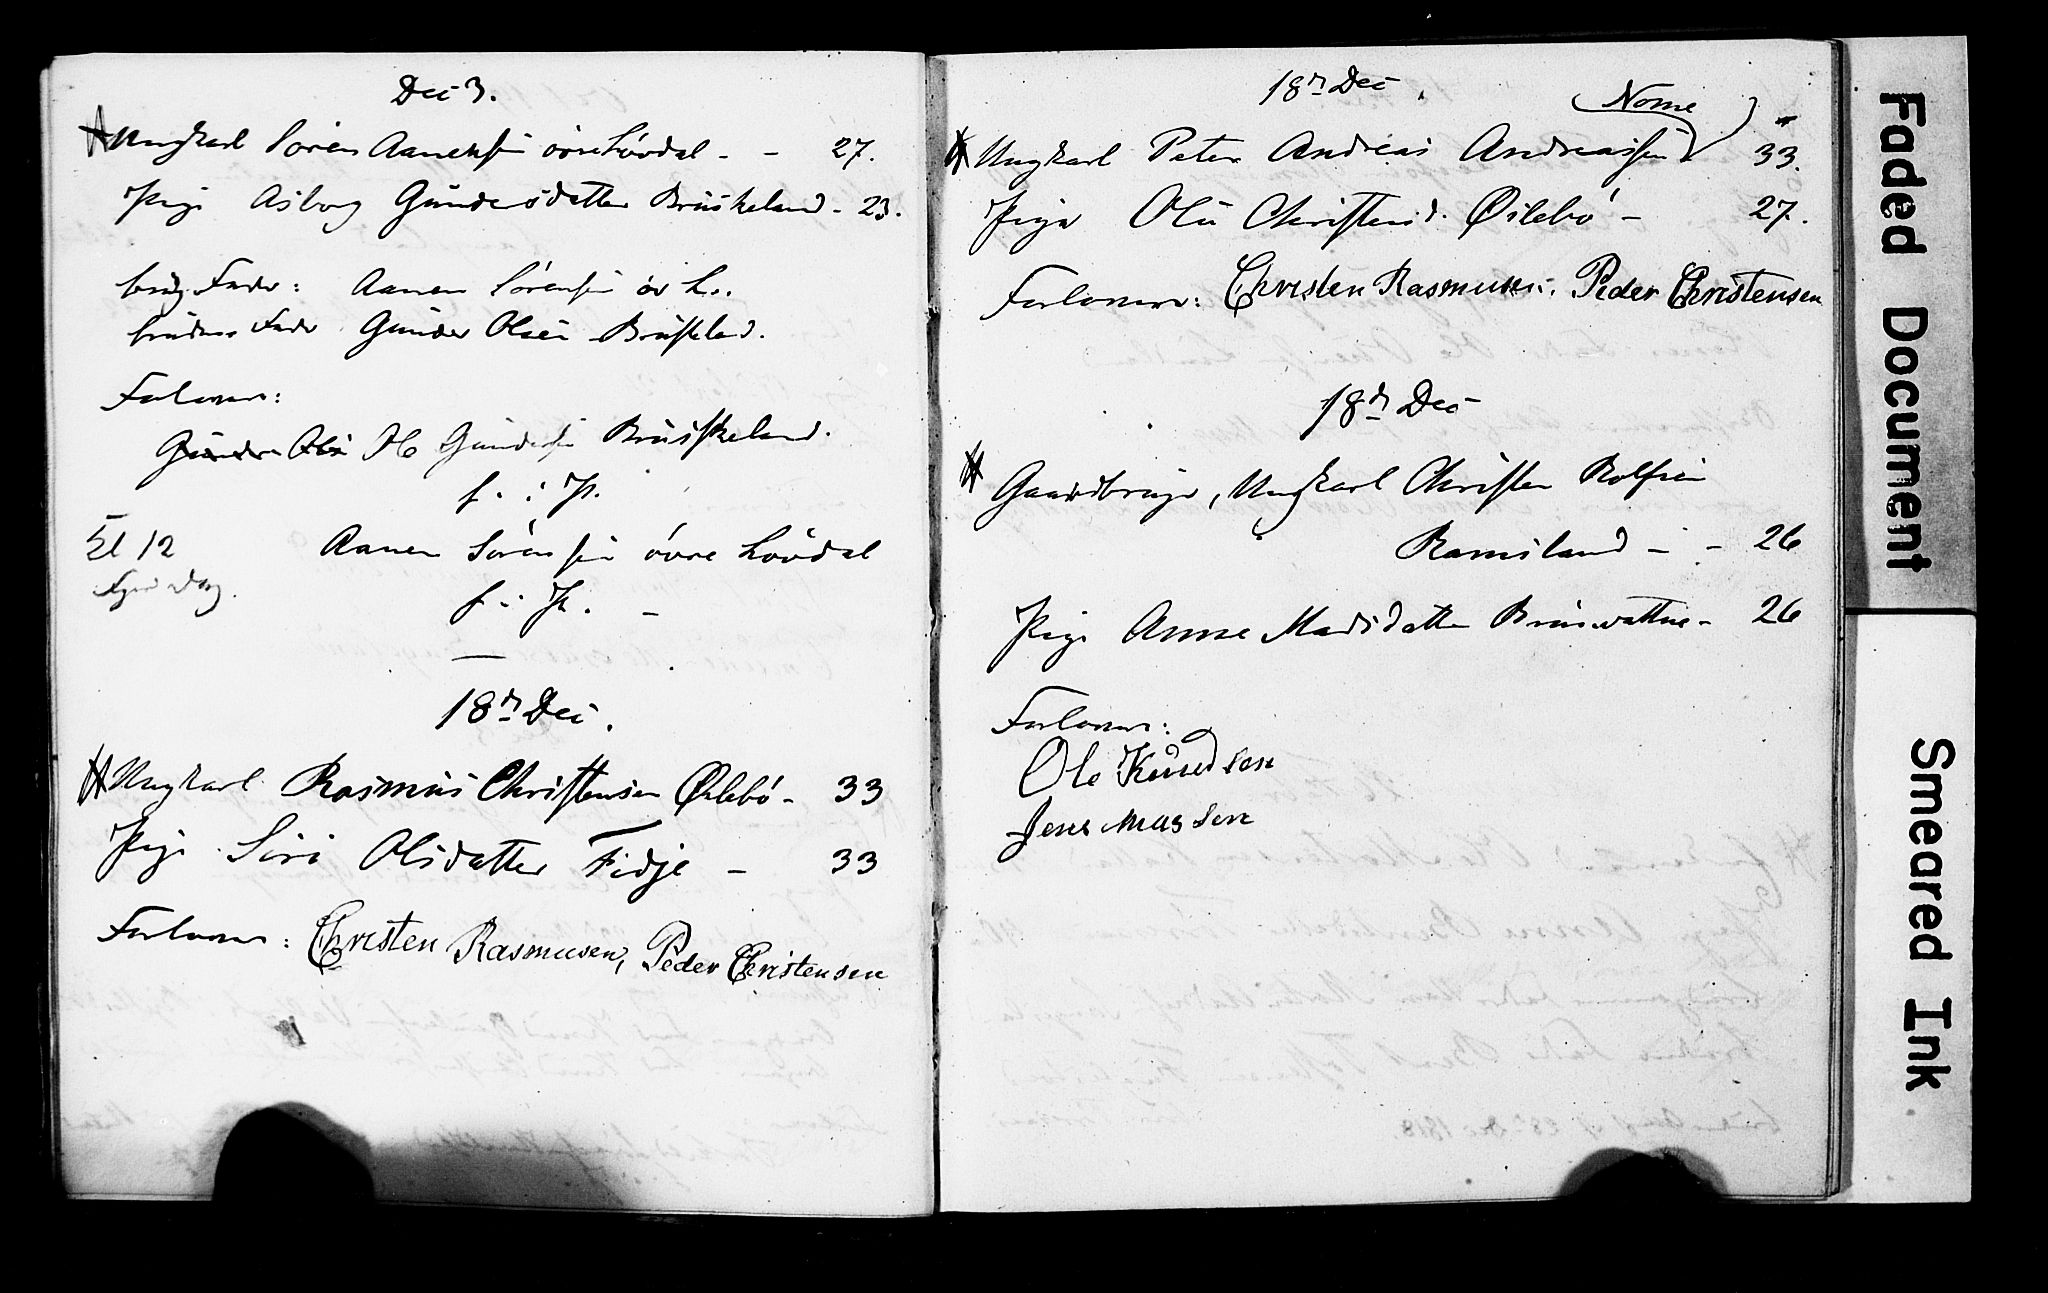 Dec 3.
Ungkarl Sören Aanensen övre Lövdal - - 27.
Pige Asborg Gundersdatter Bruskeland - 23.
brudg. Fader: Aanen Sörensen öv L..
brudens Fader Gunder Olsen Bruskeland.
Forlovere:
Gunder Olsen Ole Gundersen Bruskeland.
f. i P.
Kl 12
Aanen Sörensen övre Lövdal
f. i P. -
18de Dec.
Ungkarl Rasmus Christensen Øilebö - 33
Pige Siri Olsdatter Fidje - 33
Forlovere: Christen Rasmusen, Peder Christensen
18de Dec.
Nome
Ungkarl Peter Andreas Andreassen 33.
Pige Christensd. Øilebö - 27.
Forlovere: Christen Rasmusen, Peder Christensen
18de Dec
Gaardbruger, Ungkarl Christen Rolfsen
Ramsland - - 26
Pige Anne Madsdatter - 26
Forlovere:
Ole Knudsen
Jens Massen
Faded Document
Smeared Ink